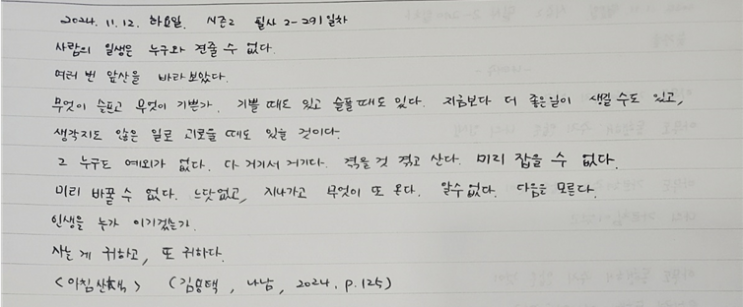 2024. 11. 12. 화요일. 시즌2 필사 2-291일차
사람의 일생은 누구와 견줄 수 없다.
여러 번 앞산을 바라보았다.
무엇이 슬프고 무엇이 기쁜가. 기쁠 때도 있고 슬플 때도 있다. 지금보다 더 좋은일이 생길 수도 있고,
생각지도 않은 일로 괴로울 때도 있을 것이다.
그 누구도 예외가 없다. 다 거기서 거기다. 겪을 것 겪고 산다. 미리 잡을 수 없다.
미리 바꿀 수 없다. 느닷없고, 지나가고 무엇이 또 온다. 알수없다. 다음을 모른다.
인생을 누가 이기겠는가.
사는 게 귀하고, 또 귀하다.
<아침산책> (김용택, 나남, 2024. p.125)